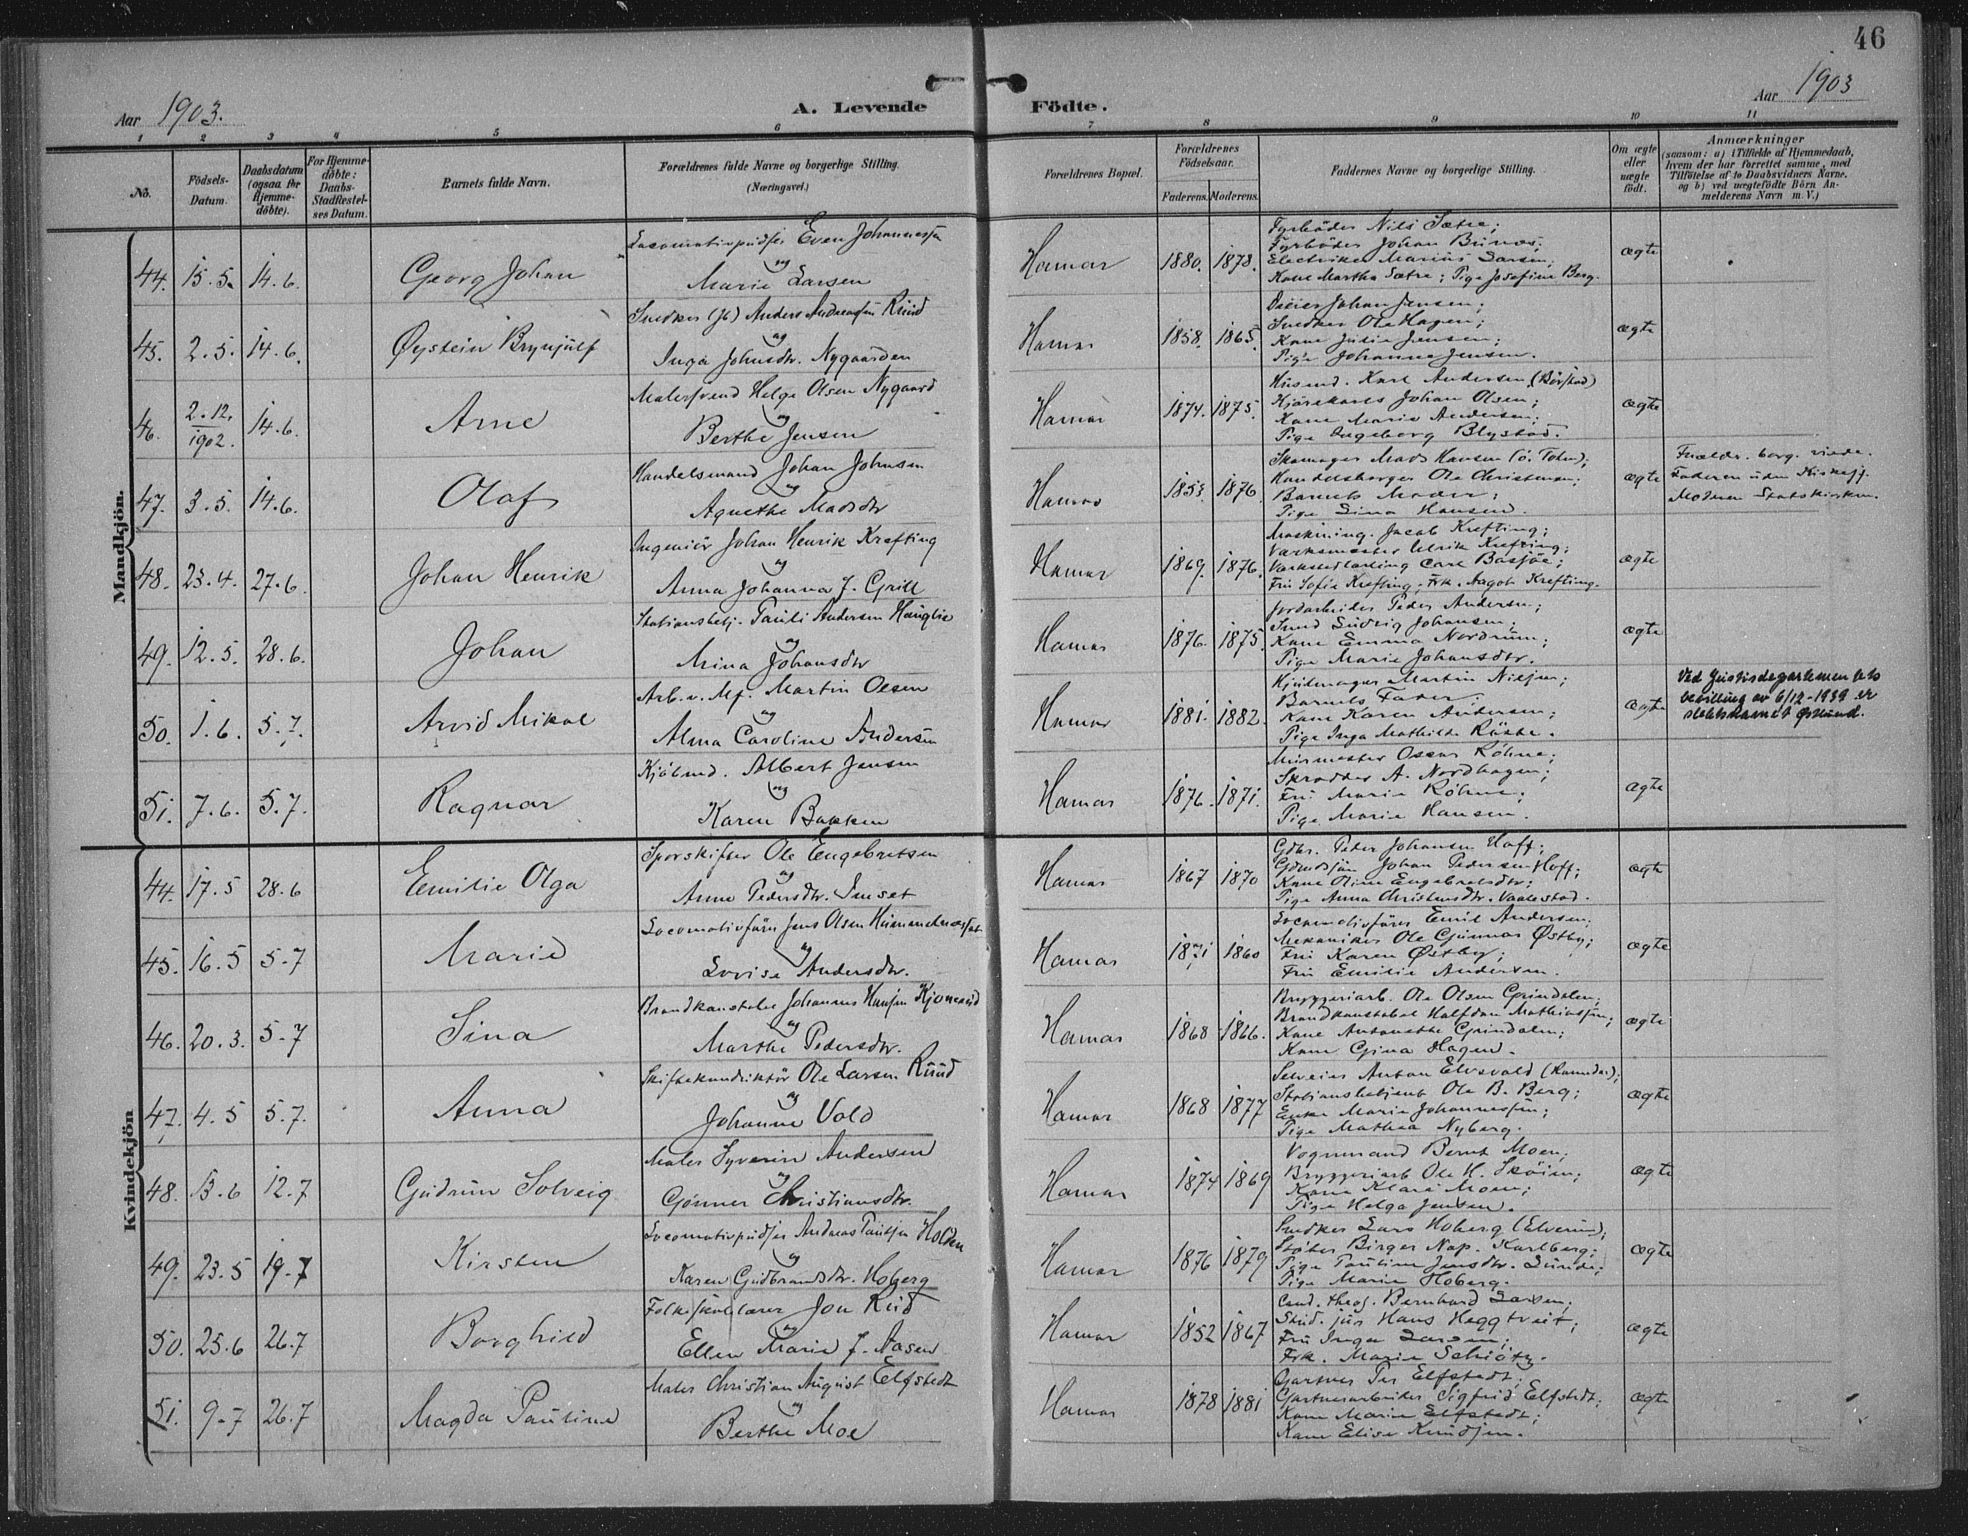 46
Aar 1903.
A. Levende Födte.
Aar 1903
1 2 3 4 5 6 7 8 9 10 11
No.
Födsels-Datum.
Daabsdatum (ogsaa for Hjemme-döbte).
For Hjemme-döbte: Daabs-Stadfestel-ses Datum.
Barnets fulde Navn.
Forældrenes fulde Navne og borgerlige Stilling. (Næringsvei.)
Forældrenes Bopæl.
Forældrenes Födselsaar.
Faderens. Moderens.
Faddernes Navne og borgerlige Stilling.
Om ægte eller uægte födt.
Anmærkninger
(saasom: a) i Tilfælde af Hjemmedaab, hvem der har forrettet samme, med Tilföielse af to Daabsvidners Navne. og b) ved uægtefödte Börn An-melderens Navn m. V.)
Mandkjön.
44. 15.5. 14.6. Georg Johan
Locomotivpudser Even Johannessen
og
Marie Larsen
Hamar 1880. 1878.
Fyrböder Nils Sætre;
Fyrböder Johan Brünæs;
Electriker Marius Larsen;
Kone Martha Sætre; Pige Josefine Berg.
ægte
45. 2.5. 14.6. Øystein Brynjulf
Snedker (Jb) Anders Andreassen Rüüd
og
Inga Johnsdtr. Nygaarden
Hamar 1858. 1865.
Johan Jensen;
Snedker Ole Hagen;
Kone Julie Jensen;
Pige Johanne Jensen.
ægte
46. 2.12. 1902. 14.6. Arne
Malersvend Helge Olsen Nygaard
og
Berthe Jensen
Hamar 1874. 1875.
Husmd. Karl Andersen (Börstad)
Kjörekarl Johan Olsen;
Kone Marie Andersen;
Pige Ingeborg Blystad.
ægte
47. 3.5. 14.6. Olaf
Handelsmand Johan Johnsen
og
Agnethe Madsdtr
Hamar 1853. 1876.
Skomager Mads Hansen (Ö. Toten);
Handelsborger Ole Christensen;
Barnets Moder;
Pige Sina Hansen.
ægte
Forældr. borg. viede.
Faderen uden Kirkesf.
Moderen Statskirken.
48. 23.4. 27.6. Johan Henrik
Ingeniör Johan Henrik Krefting
og
Anna Johanna J. Grill
Hamar 1869. 1876.
Maskining. Jacob Krefting;
Værksmester Ulrik Krefting;
Værkstedlærling Carl Basjöe;
Frü Sofie Krefting; Frk. Aagot Krefting.
ægte
49. 12.5. 28.6. Johan
Stationsbetj. Pauli Andersen Hauglie
og
Mina Johansdtr
Hamar 1876. 1875.
Jordarbeider Peder Andersen;
Smed Ludvig Johansen;
Kone Emma Nordrum;
Pige Marie Johansdtr.
ægte
50. 1.6. 5.7. Arvid Mikal
Arb. v. Mf. Martin Olsen
og
Alma Caroline Andersen
Hamar 1881. 1882.
Hjulmager Martin Nilsen;
Barnets Fader;
Kone Karen Andersen;
Pige Inga Mathilde Röste.
ægte
Ved Justisdepartementets
bevilling av 6/12-1939 er
slektsnavnet Østlund.
51. 7.6. 5.7. Ragnar
Kjöbmd. Albert Jensen
og
Karen Bakken
Hamar 1876. 1871.
Mürmester Oscar Röhne;
Skrædder A. Nordhagen;
Frü Marie Röhne;
Pige Marie Hansen.
ægte
Kvindekjön
44. 17.5 28.6 Emilie Olga
Sporskifter Ole Engebretsen
og
Anne Pedersdtr. Imset
Hamar 1867 1870
Gdbr. Peder Johansen Hoff;
Johan Pedersen Hoff;
Kone Oline Engebretsdtr;
Pige Anna Christensdtr. Vaalestad.
ægte
45. 16.5 5-7 Marie
Locomotivförer Jens Olsen
og
Lovise Andersdtr.
Hamar 1871 1860
Locomotivförer Emil Andersen;
Mekaniker Ole Gunnar Østby;
Frü Karen Østby;
Frü Emilie Andersen.
ægte
46. 20.3. 5-7 Sina
Brandkonstabel Johannes Hansen
og
Marthe Pedersdtr.
Hamar 1868 1866.
Bryggeriarb. Ole Olsen Grindalen;
Brandkonstabel Halfdan Mathiassen;
Kone Antonette Grindalen;
Kone Gina Hagen.
ægte
47. 4.5 5.7. Anna
Skiftekonduktör Ole Larsen Rüüd
og
Johanne Vold
Hamar 1868 1877
Selveier Anton Elvevold (Romedal);
Stationsbetjent Ole B. Berg;
Enke Marie Johannessen;
Pige Mathea Nyberg.
ægte
48. 13.6 12.7 Güdrün Solveig
Maler Syverin Andersen
og
Gunner Christiansdtr.
Hamar 1874 1869
Vognmand Bernt Moen;
Bryggeriarb Ole H. Sköien;
Kone Klara Moen;
Pige Helga Jensen.
ægte
49. 23.5 19-7 Kirsten
Locomotivpudser Andreas Paulsen Holden
og
Karen Gudbrandsdtr. Hoberg
Hamar 1876 1879
Snedker Lars Hoberg (Elverum);
Støber Birger Nap. Karlberg;
Pige Pauline Jensdtr. Lunde;
Pige Marie Hoberg.
ægte
50. 25.6 26.7 Borghild
Folkeskolelærer Jon Rüd
og
Ellen Marie J. Aasen
Hamar 1852 1867
Cand. theol. Bernhard Larsen;
Stud. jur Hans Heggtveit;
Frü Inga Larsen;
Frk. Marie Schiötz.
ægte
51. 9-7 26.7 Magda Pauline
Maler Christian August Elfstedt
og
Berthe Moe
Hamar 1878 1881
Gartner Per Elfstedt;
Gartnerarbeider Sigfrid Elfstedt;
Kone Marie Elfstedt;
Kone Elise Knudsen.
ægte